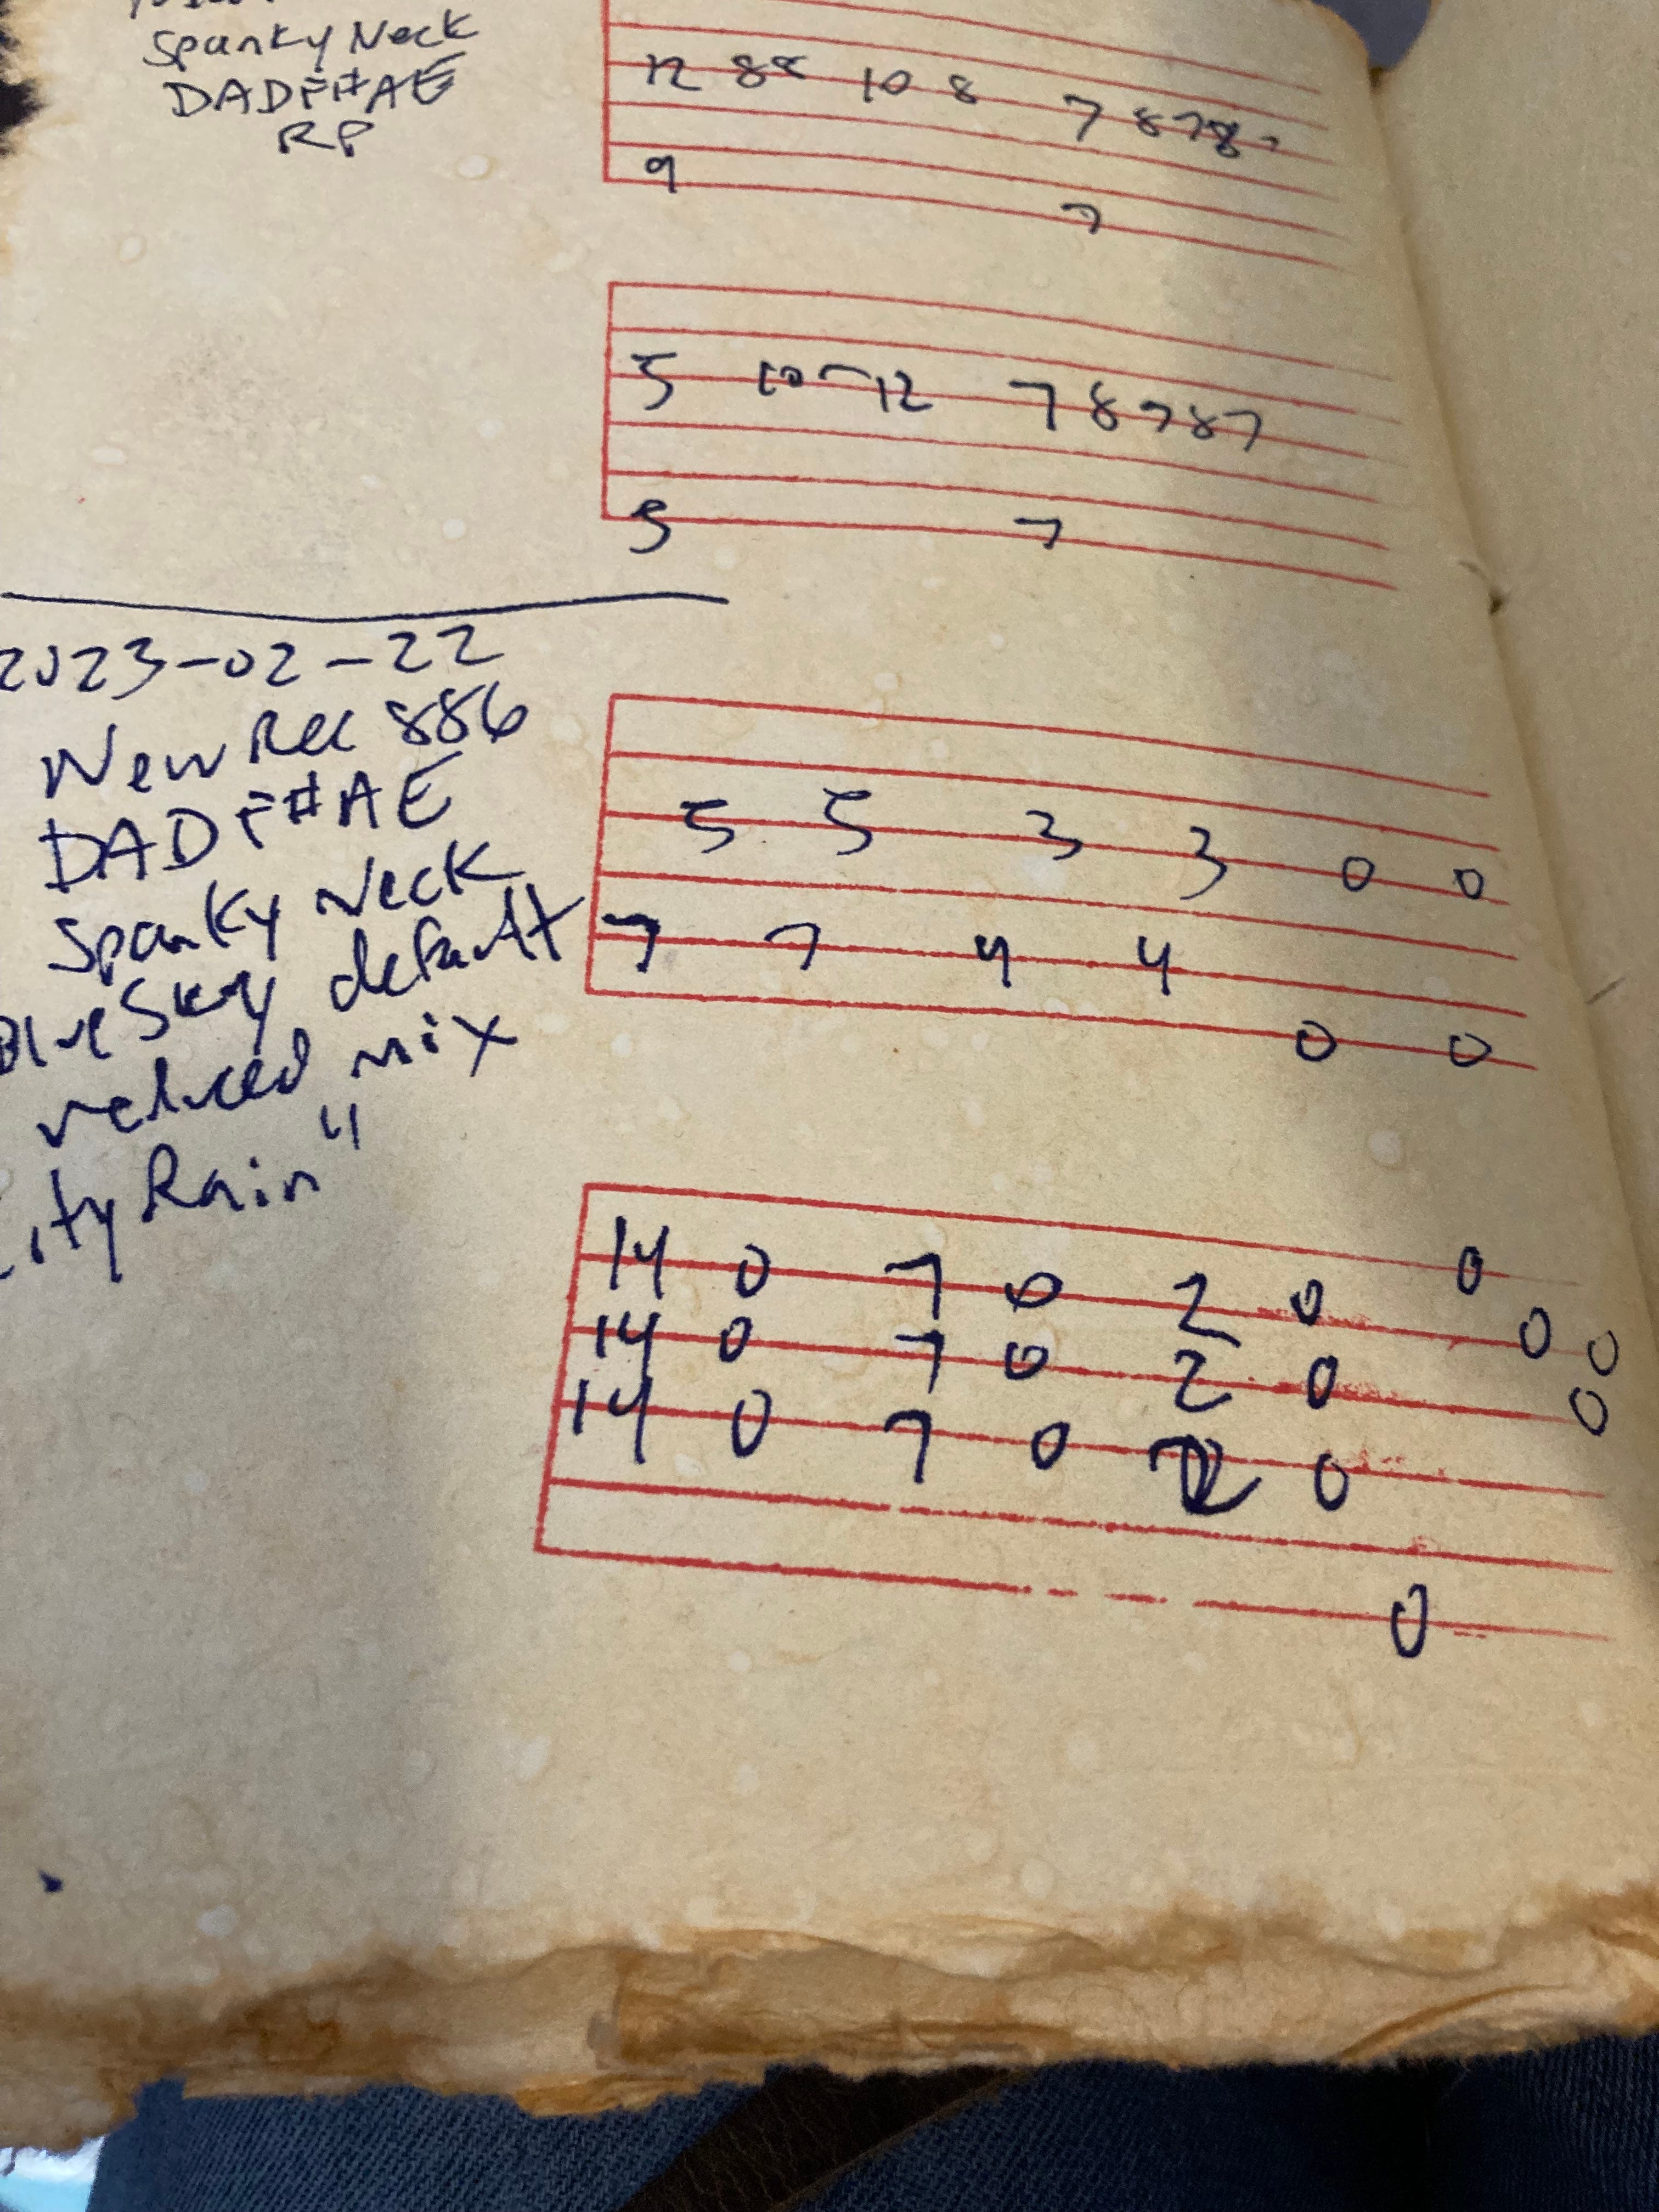 Spanky Neck
DADF#AE
RP
12 8 8 10 8 7 8 7 8 7
9 7
5 10 12 7 8 7 8 7
5 7
2023-02-22
New Rec 886
DADF#AE
Spanky Neck
BlueSky default
reduced mix
City Rain"
5 5 3 3 0 0
7 7 4 4
0 0
0
14 0 7 0 2 0 0 0
14 0 7 0 2 0 0
14 0 7 0 2 0
0